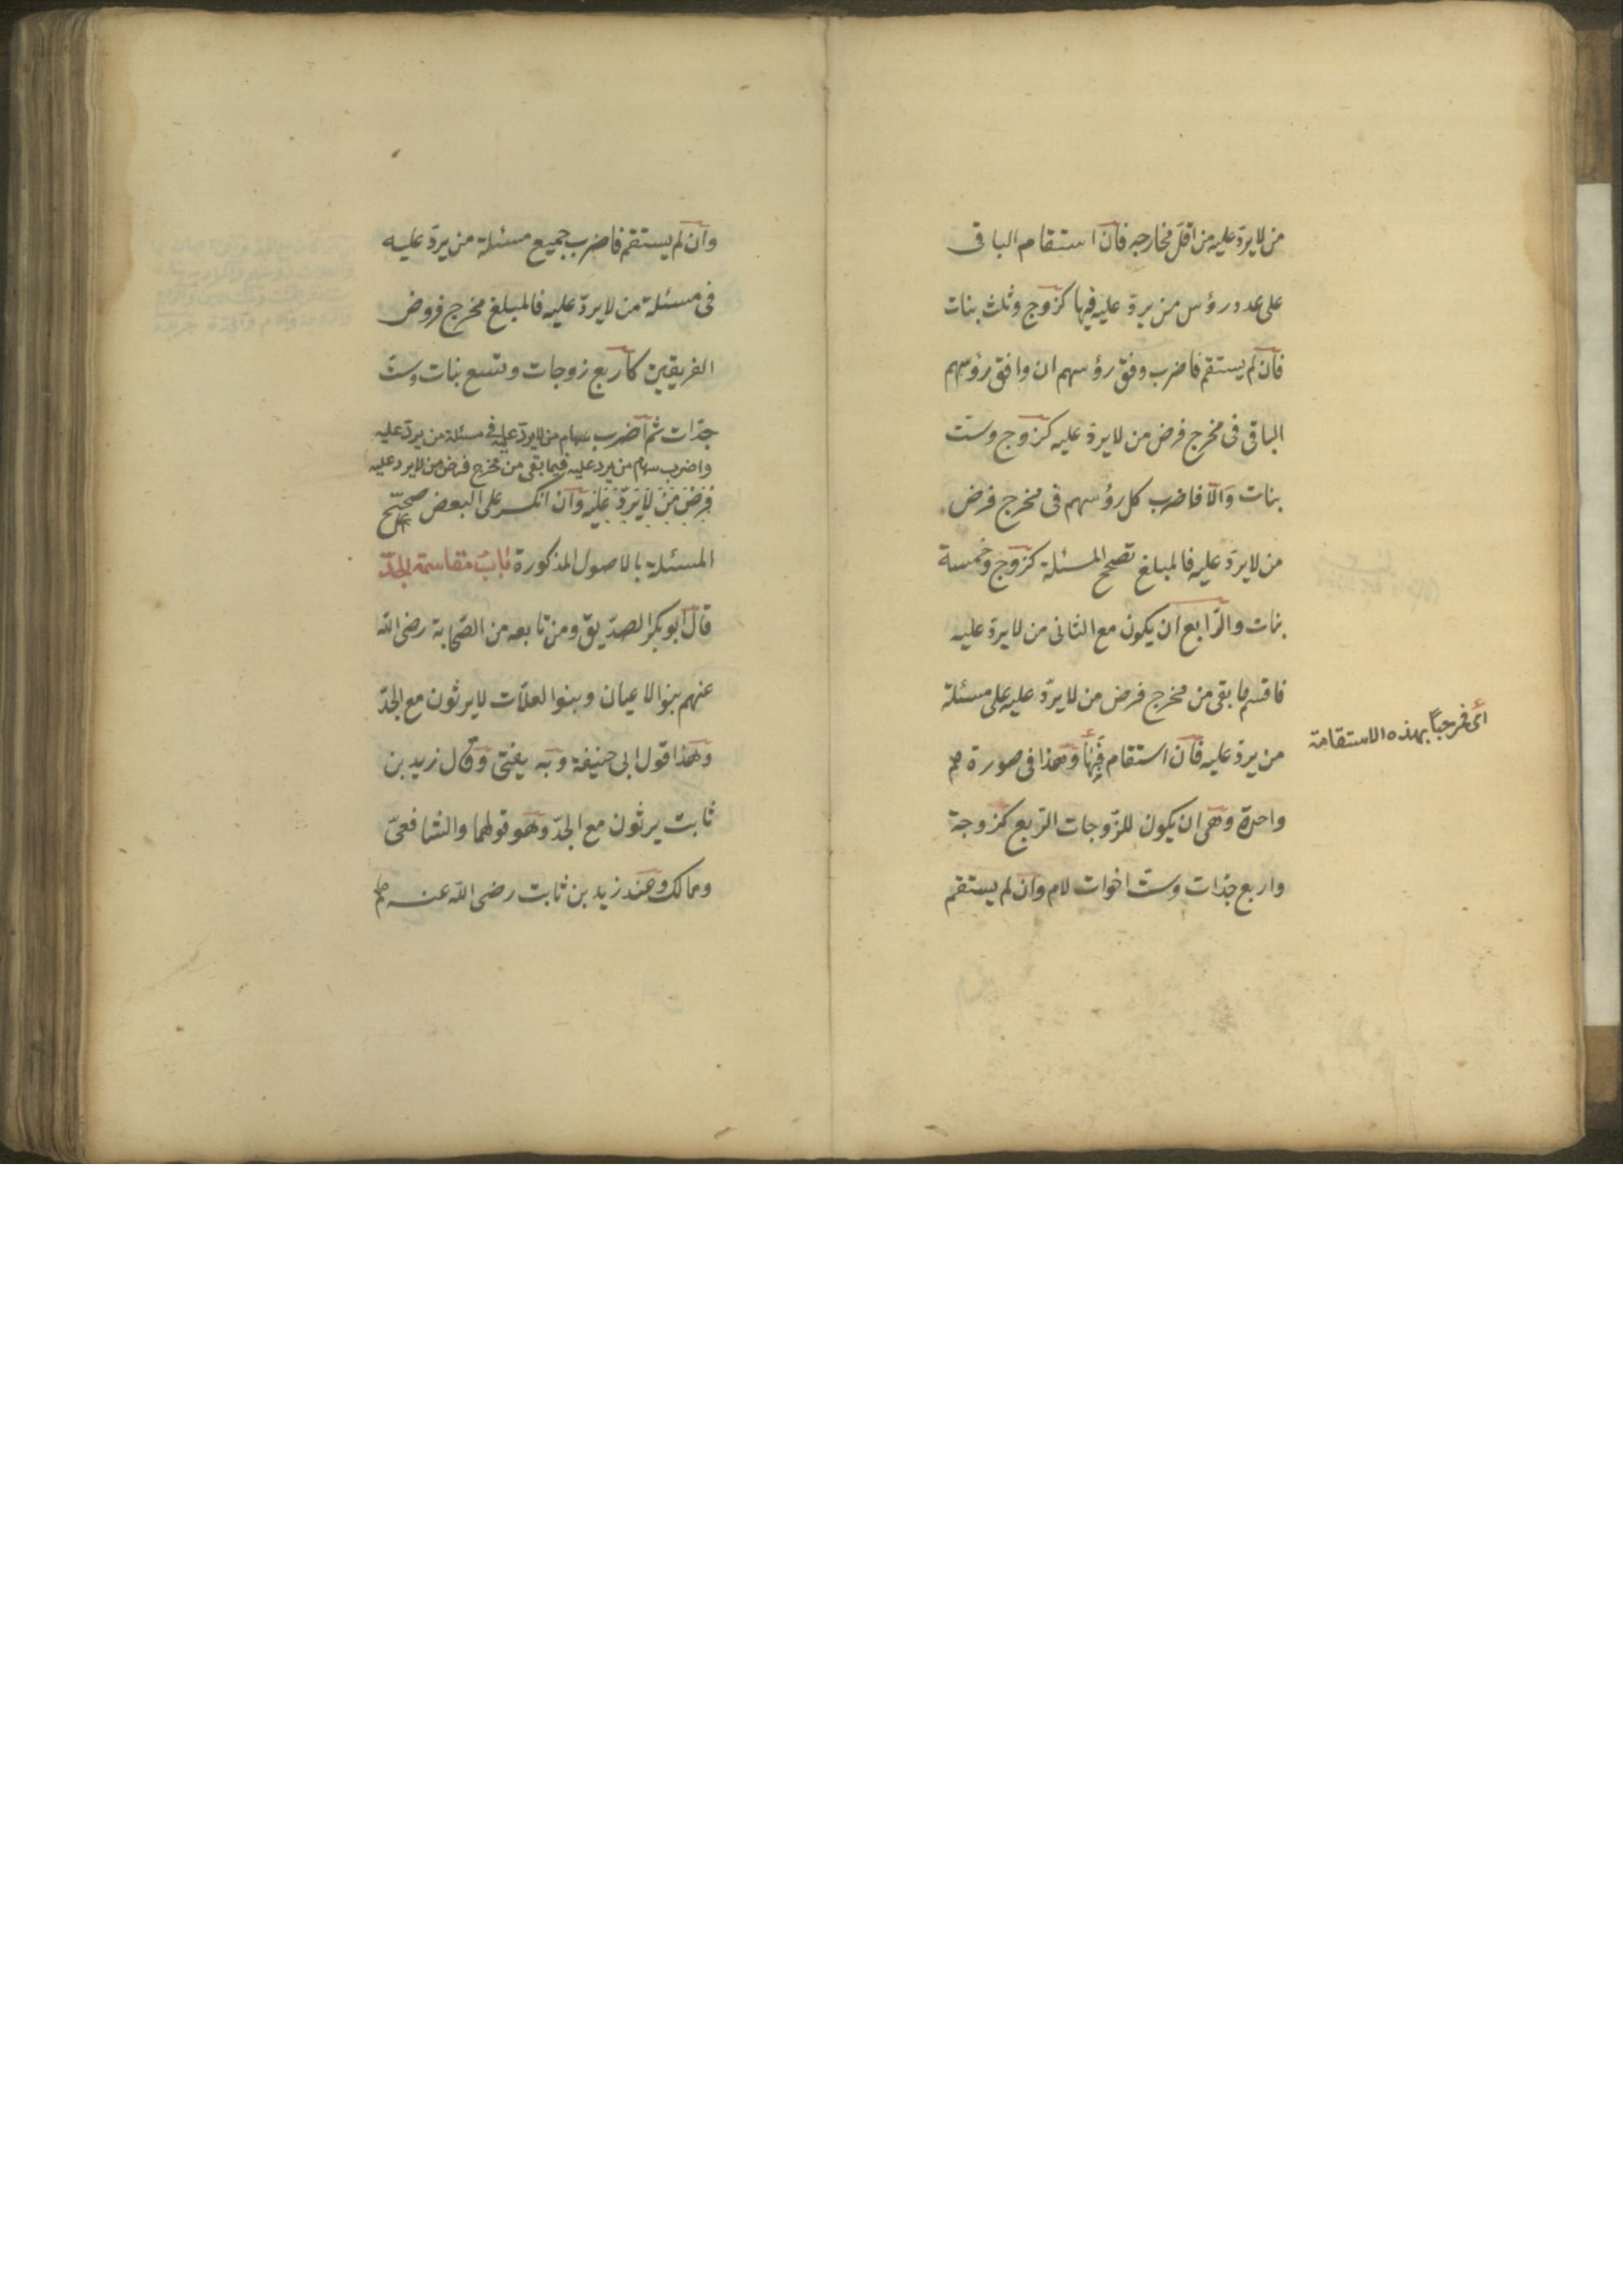 من لا يردّ عليه من اقلّ مخارجه فان استقام الباقى
على عدد رؤس من يردّ عليه فيها كزوج وثلث بنات
فان لم يستقم فاضرب وفق رؤسهم ان وافق رؤسهم
الباقى فى مخرج فرض من لا يردّ عليه كزوج وستّ
بنات والّا فاضرب كل رؤسهم فى مخرج فرض
من لا يردّ عليه فالمبلغ تصحح المسئلة كزوج وخمسة
بنات والرّابع ان يكون مع الثانى من لا يردّ عليه
فاقسم ما بقى من مخرج فرض من لا يردّ عليه على مسئلة
من يردّ عليه فان استقام فبها وهذا فى صورة
اى فمرحبًا بهذه الاستقامة
واحدة وهى ان يكون للزّوجات الرّبع كزوجة
واربع جدّات وستّ اخوات لام وان لم يستقم
وان لم يستقم فاضرب جميع مسئلة من يردّ عليه
فى مسئلة من لا يردّ عليه فالمبلغ مخرج فروض
الفريقين كاربع زوجات وتسع بنات وستّ
جدّات ثم اضرب سهام من لا يردّ عليه فى مسئلة من يردّ عليه
واضرب سهام من يرد عليه فيما بقى من مخرج فرض من لا يرد عليه
فرض من لا يردّ عليه وان انكسر على البعض صحّح
المسئلة بالاصول المذكورة باب مقاسمة الجدّ
قال ابو بكر الصدّيق ومن تابعه من الصّحابة رضى الله
عنهم بنوا الاعيان وبنوا العلّات لا يرثون مع الجدّ
وهذا قول ابى حنيفة وبه يفتى وقال زيد بن
ثابت يرثون مع الجدّ وهو قولهما والشافعىّ
ومالك وعند زيد بن ثابت رضى الله عنه